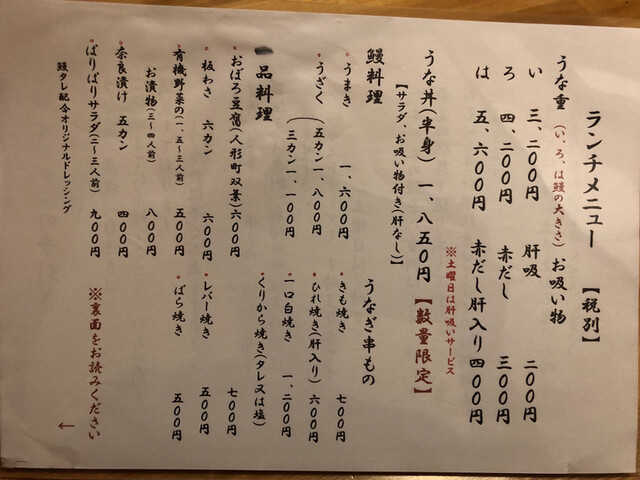 ランチメニュー 【税別】
うな重(い、ろ、は鰻の大きさ) お吸い物
い 三、二〇〇円 肝吸 二〇〇円
ろ 四、二〇〇円 赤だし 三〇〇円
は 五、六〇〇円 赤だし肝入り四〇〇円
※土曜日は肝吸いサービス
うな丼(半身) 一、八五〇円【数量限定】
【サラダ、お吸い物付き(肝なし)】
鰻料理
・うまき 一、六〇〇円
・うざく(五カン一、八〇〇円
三カン一、一〇〇円
一品料理
・おぼろ豆腐(人形町双葉)六〇〇円
・板わさ 六カン 六〇〇円
・有機野菜の(一、五〜三人前) 五〇〇円
お漬物(三〜四人前) 八〇〇円
・奈良漬け 五カン 四〇〇円
・ぱりぱりサラダ(二〜三人前) 九〇〇円
鰻タレ配合オリジナルドレッシング
うなぎ串もの
・きも焼き 七〇〇円
・ひれ焼き(肝入り) 六〇〇円
・一口白焼き 一、二〇〇円
・くりから焼き(タレ又は塩)
七〇〇円
・レバー焼き 五〇〇円
・ばら焼き 五〇〇円
※裏面をお読みください
←